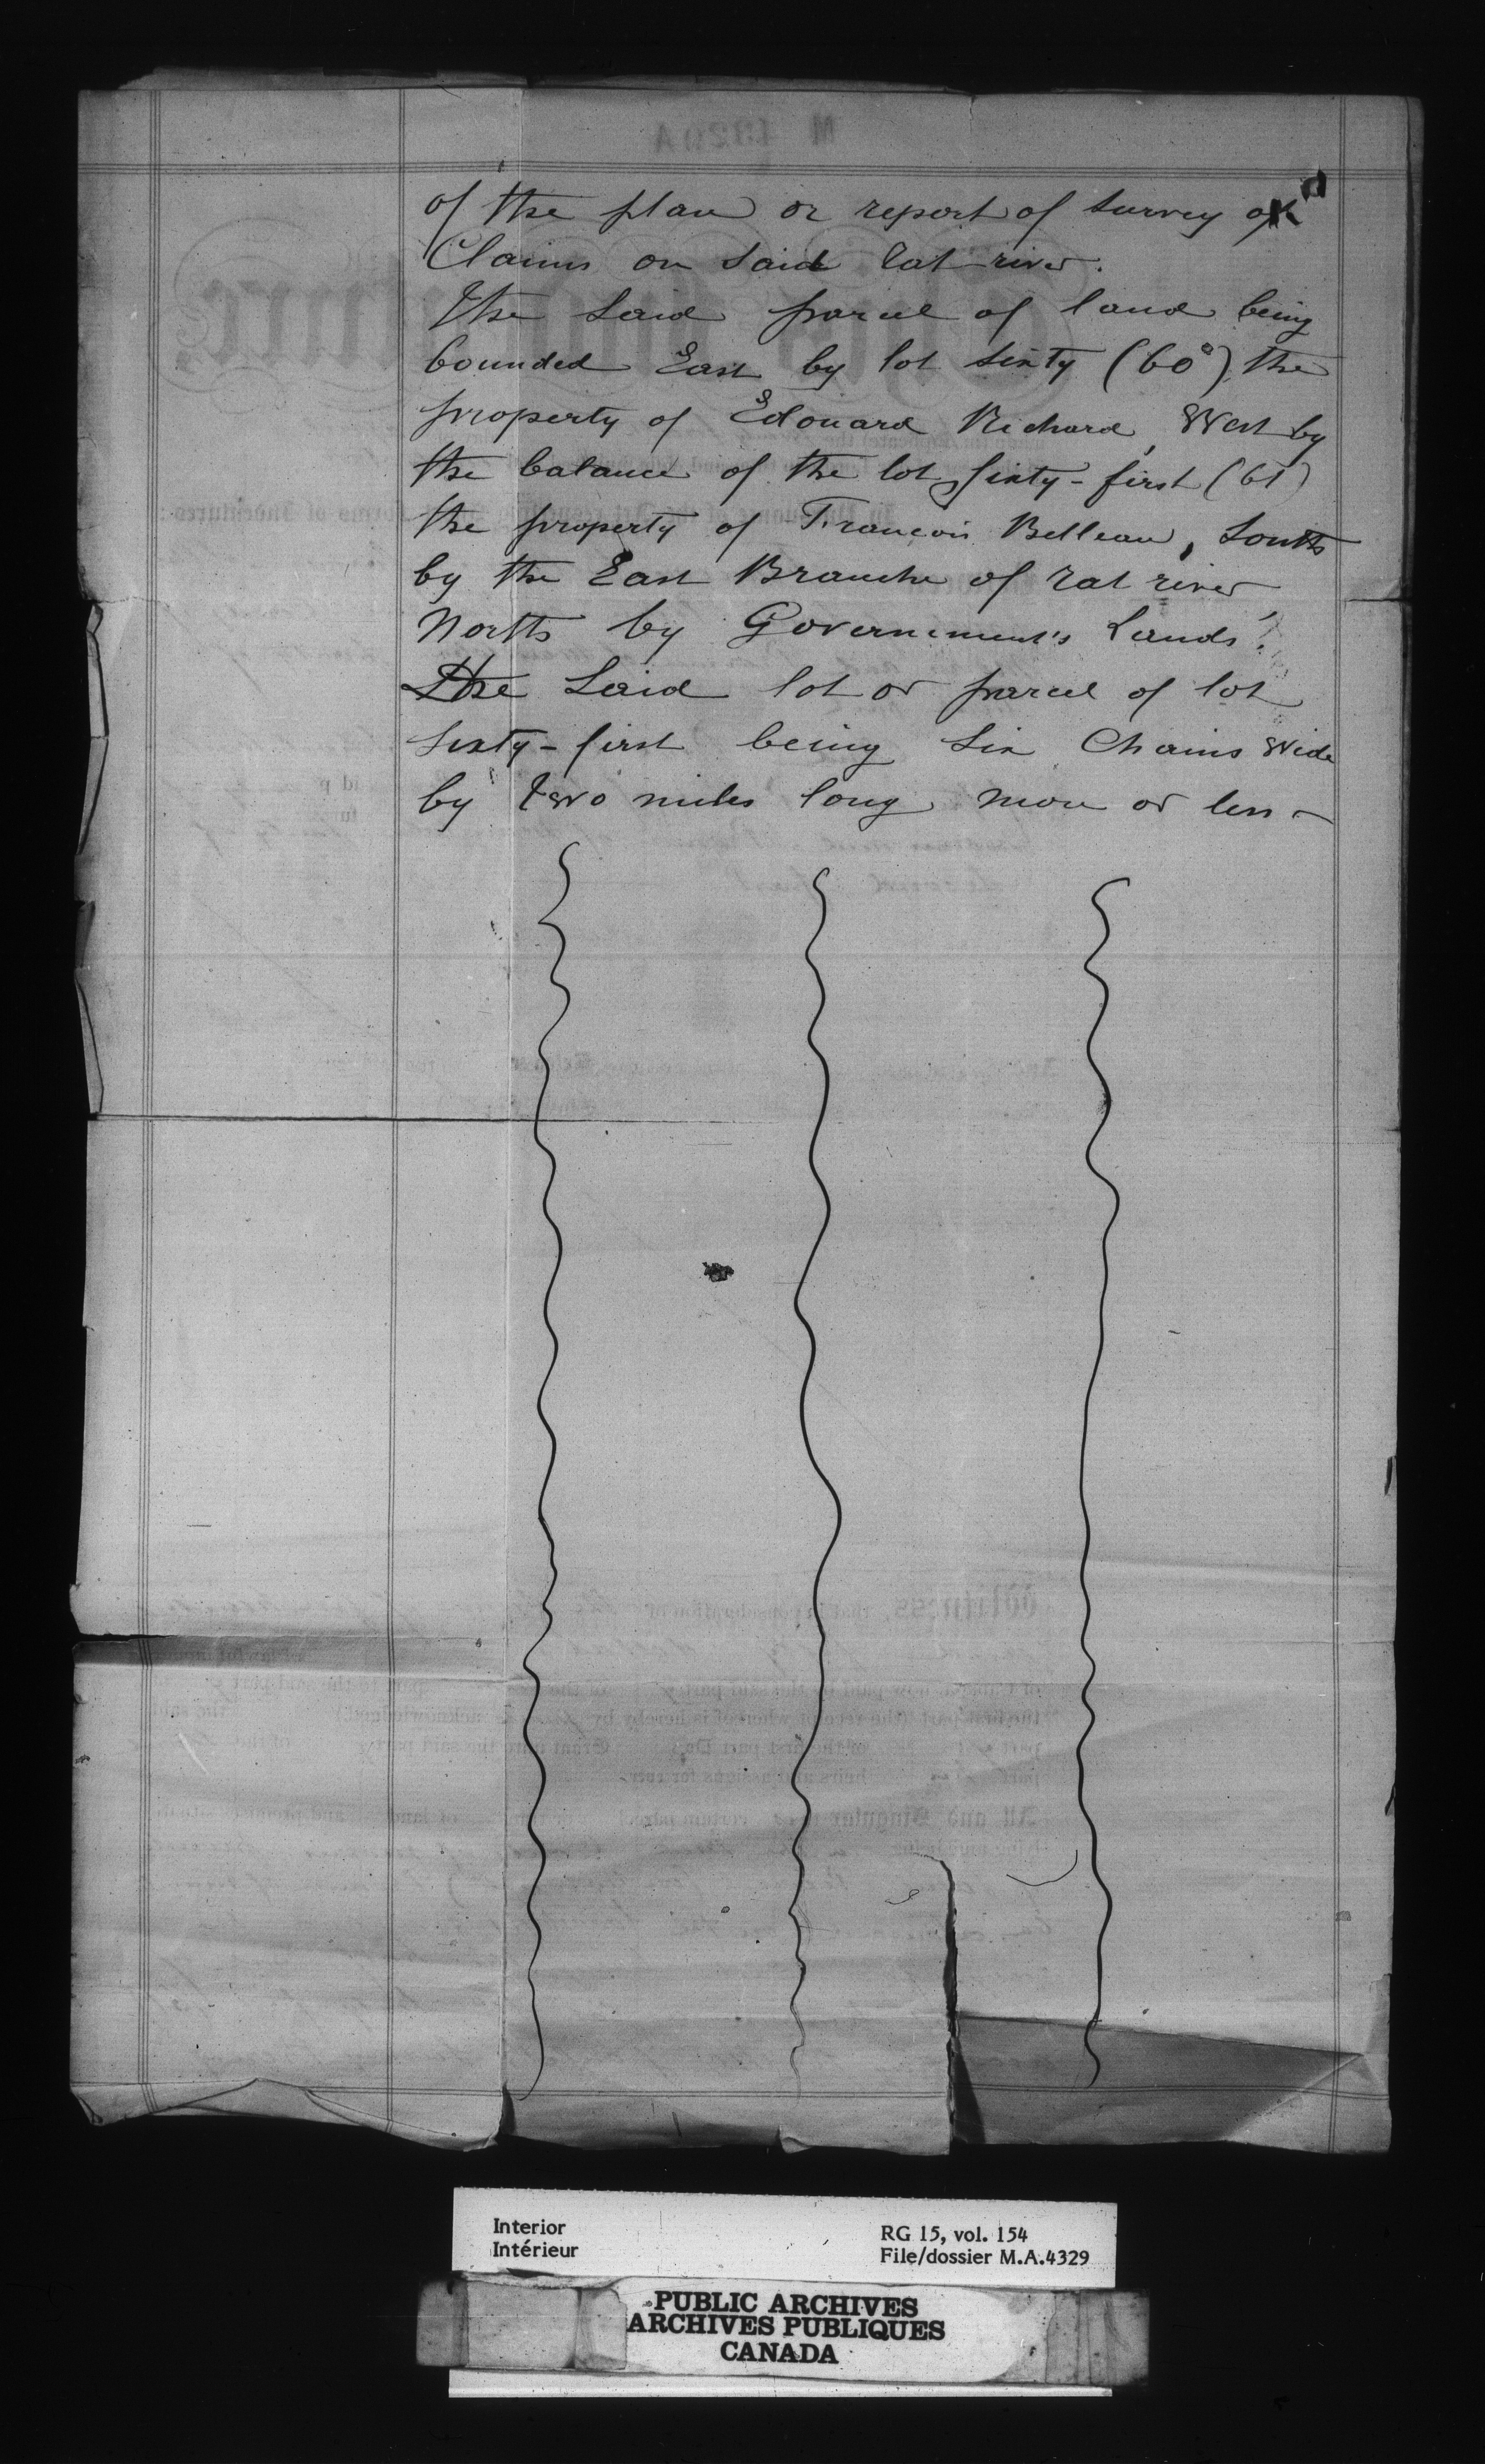 of the plan or report of survey of
Claims on said rat river.
The said parcel of land being
bounded East by lot sixty (60°), the
property of Edouard Richard, West by
the balance of the lot sixty-first (61)
the property of Francois Belleau, South
by the East Branche of rat river
North by Governement's Lands.
The said lot or parcel of lot
sixty-first being six Chains Wide
by two miles long more or less
Interior
Intérieur
RG 15, vol. 154
File/dossier M.A.4329
PUBLIC ARCHIVES
ARCHIVES PUBLIQUES
CANADA